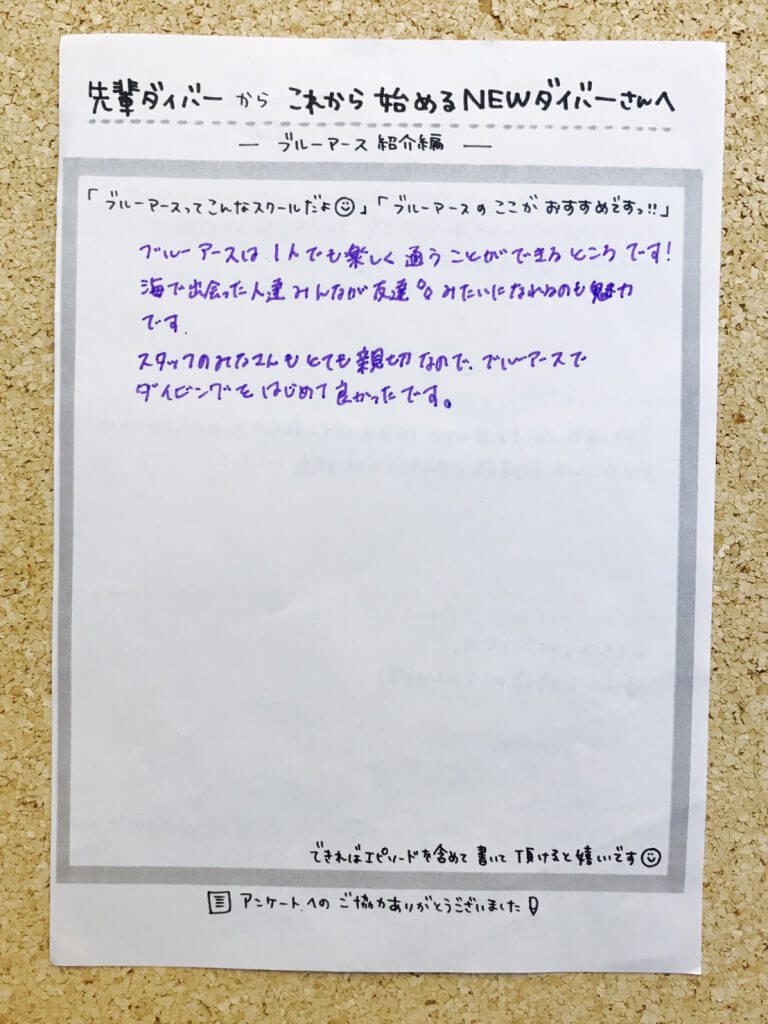 先輩ダイバーから これから 始める NEWダイバーさんへ
― ブルーアース 紹介編 ―
「ブルーアースってこんなスクールだよ☺」「ブルーアースの ここが おすすめですっ!!」
ブルーアースは 1人でも楽しく 通う ことができる ところ です!
海で出会った人達 みんなが 友達 みたいになれるのも 魅力
です.
スタッフのみなさんも とても 親切 なので、ブルーアースで
ダイビングを はじめて 良かったです。
できればエピソードを含めて 書いて 頂けると 嬉しいです☺
アンケートへの ご協力ありがとうございました